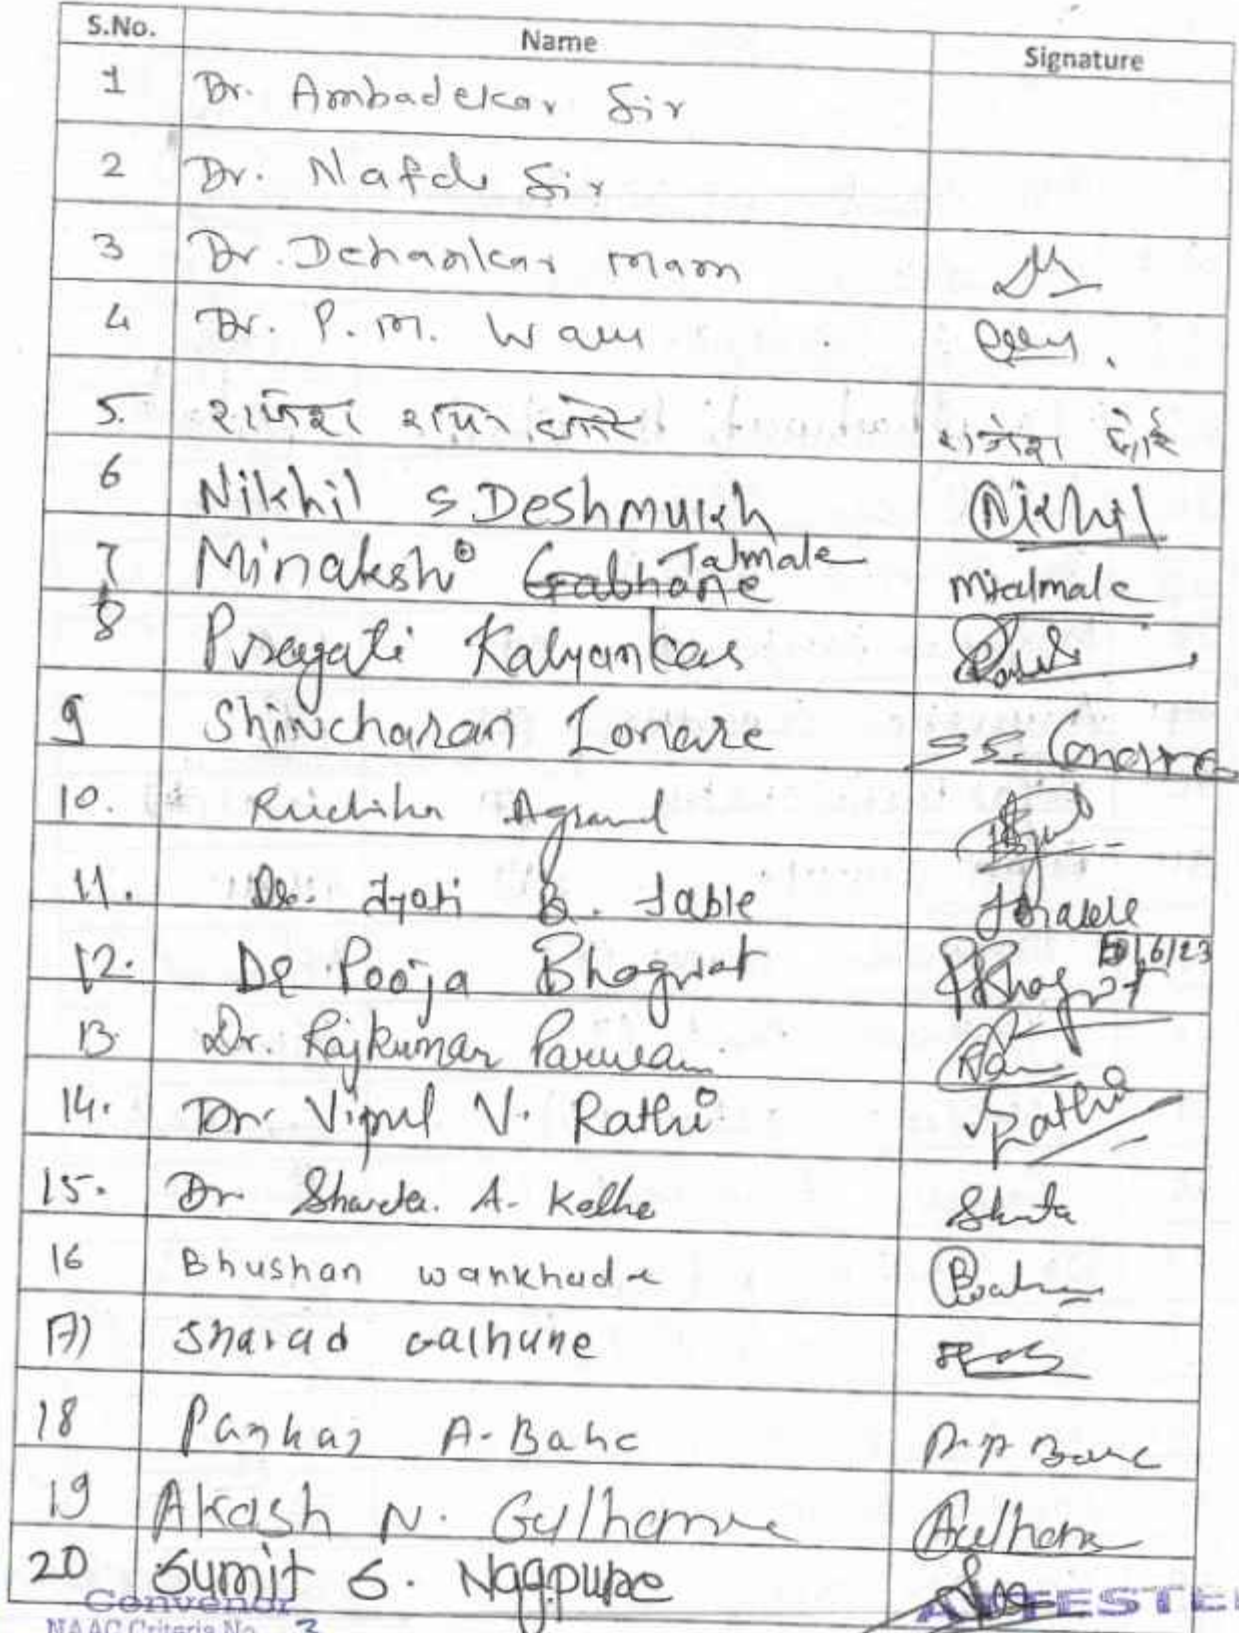 S.No. Name Signature
1 Dr. Ambadekar Sir
2 Dr. Nafde Sir
3 Dr. Dehankar mam
4 Dr. P. M.
5. राजेश राजेश
6 Nikhil S Deshmukh Nikhil
7 Minakshi Gabhane Talmale Mtalmale
8 Pragati Kalyankar
9 Shivcharan Lonare S S. Lonare
10. Ruchika Agrawal
11. Dr. Jyoti B. Jable
12. Dr Pooja Bhagwat PBhagwat 6/23
13 Dr. Rajkumar
14. Dr. Vipul V. Rathi Rathi
15. Dr Sharda. A. Kolhe
16 Bhushan wankhade
17) Sharad Galhune
18 Pankaj A. Bahe
19 Akash N.
20 Sumit S. Nagpure
Convenor ATTESTED
NAAC Criteria No. 3